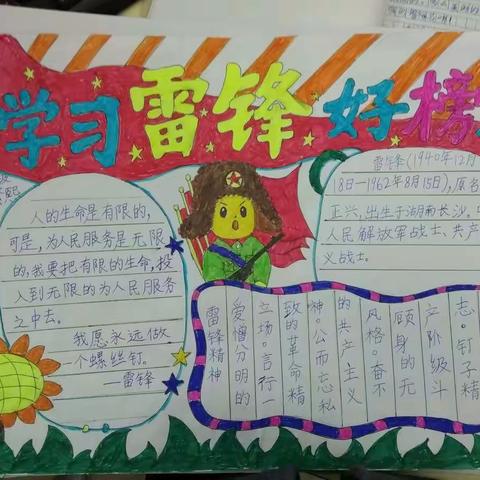 学习雷锋好榜
熙
人的生命是有限的,
可是,为人民服务是无限
的,我要把有限的生命,投
入到无限的为人民服务
之中去。
我愿永远做
个螺丝钉。
—雷锋
雷锋(1940年12月
18日—1962年8月15日),原名
正兴,出生于湖南长沙。
人民解放军战士、共产
义战士。
雷锋精神
爱憎分明的
立场。言行一
致的革命精
神。公而忘私
的共产主义
风格。奋不
顾身的无
产阶级斗
志。钉子精